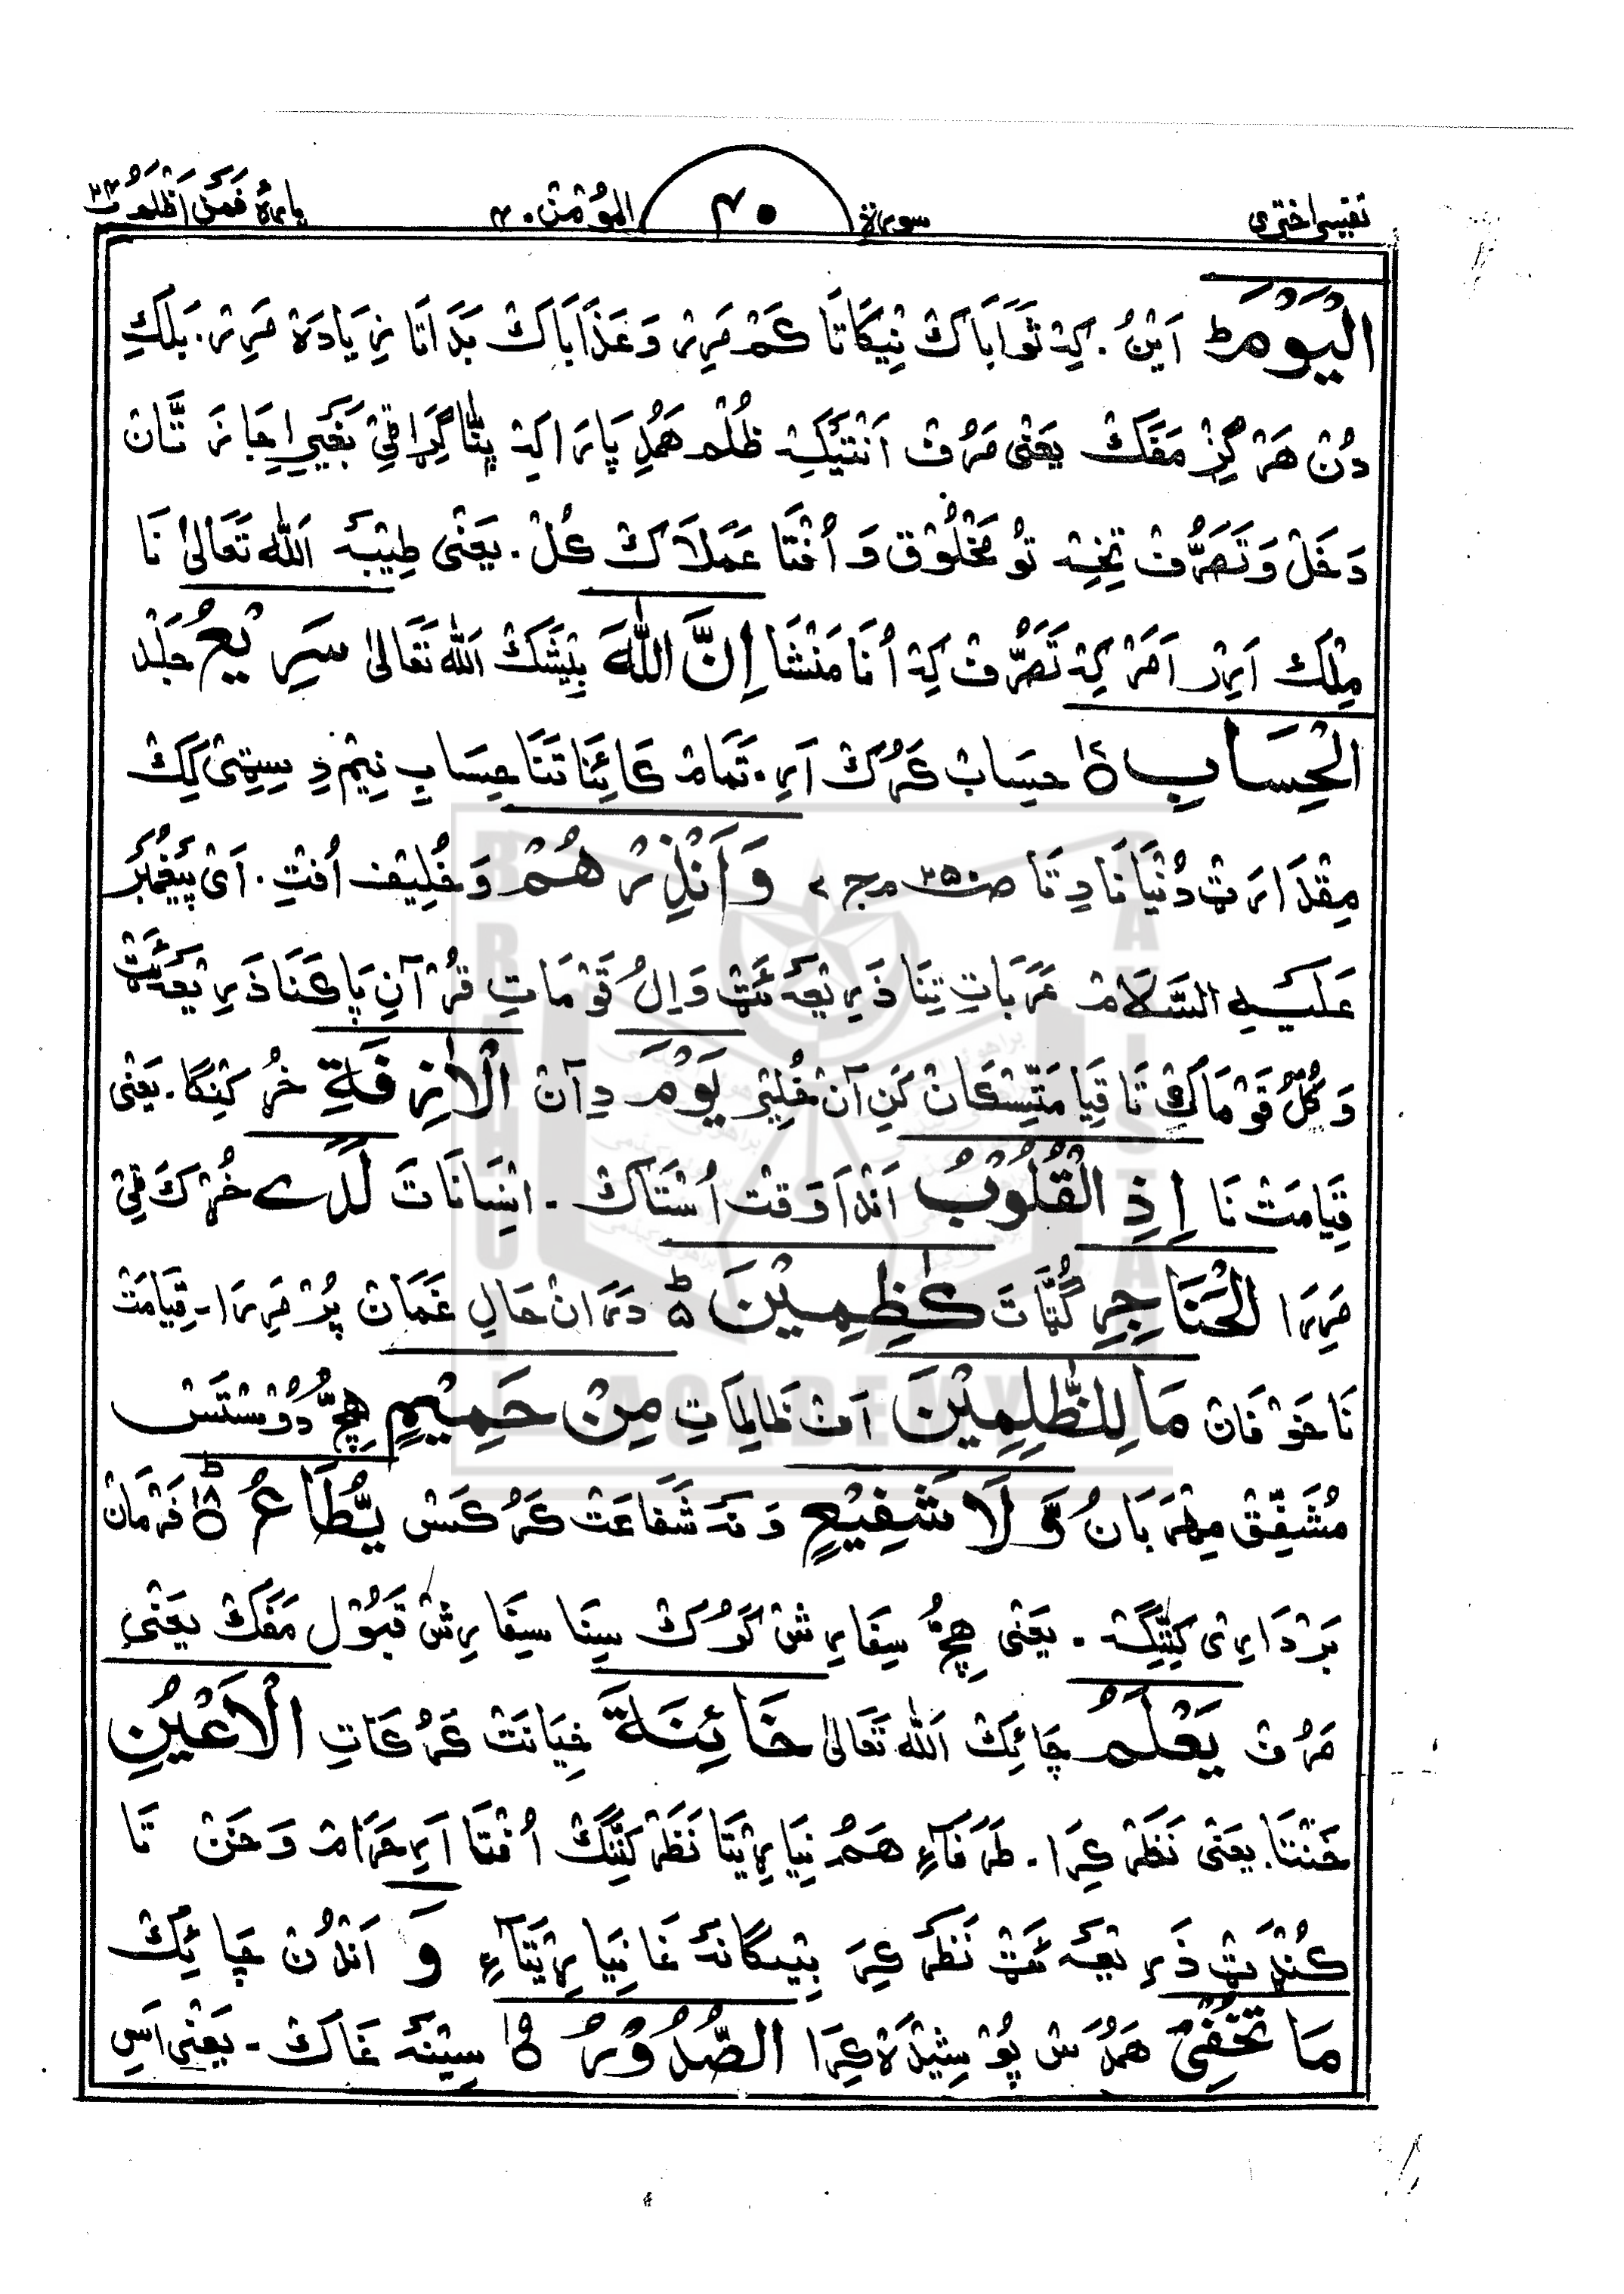 تفسیر اختری سورة ۴۰ المؤمن۔ ۴۰ پارہ فمن اظلم ۲۴
اَلْیَوْمَؕ اَیْنُ. کِہ ثَوَاَبَاکْ نِیْکَاتَا کَمْ مَرِیْر وَعَذَاَبَاکْ بَدَاتَا زِیَادَہ مَرِیْر. بَلکِ
دُنْ ھَرْگِزْ مَفَکْ یَعْنٰی صَرْف اَنْتَیْکِہ ظُلْم ھَمُدِ پَارَا کِہ پِتَّا گِڑَاقِیْ بَغَیْر اِجَازَتَّان
دَخَلْ وَتَصَرُّف تِخِہ تَوْ مَخْلُوْق وَ اُفْتَا عَمَلَاکْ کُلْ. یَعْنٰی طِیْبَہ اَللّٰہ تَعَالٰی نَا
مِلْک اَرِیْر اَمَرْ کِہ تَصَرُّف کِہ اُنَا مَنْشَا اِنَّ اللّٰہَ بِیْشَکْ اَللّٰہ تَعَالٰی سَرِیْعُ جَلْد
الْحِسَابِ ۝۱۷ حِسَابْ کَرُکْ اَرِ. تَمَامْ کَائِنَاتَنَا حِسَابِ نِیْم دِ سِیْتِیْ کِکْ
مِقْدَارَٹْ دُنْیَا نَا دِتَا صْ ۳۵۰ مج ۴ وَاَنْذِرْھُمْ وَخُلِیْف اُفْتِ. اَیْ پَیْغَمْبَر
عَلَیْہِ السَّلَامْ عَرَبَاتِ تِنَا ذَرِیْعَہ ئَٹْ وَاِلُ قَوْمَاتِ قُرْآنِ پَاکْنَا ذَرِیْعَہ ئَٹْ
وَکُلُّ قَوْمَاکْ تَا قِیَامَتِسْکَانْ کَنِ آن خُلِیْر یَوْمَ دِآن الْاٰزِفَۃِ خُر کَنِنْگا. یَعْنٰی
قِیَامَتْ نَا اِذِ الْقُلُوْبُ اَنْدَا وَقْت اُسْتَاکْ۔ اِنْسَانَاتَ لَدَی خُڑْکَ قِیْ
مَرِرَا الْحَنَاجِرِ گُٹَّاتَ کٰظِمِیْنَ ؕ۵ دَرَانْ حَالِ غَمَّانْ پُرْ مَرِرَا۔ قِیَامَتْ
نَا خَوْفَان مَا لِلظّٰلِمِیْنَ اَفْ ظَالِمَاتِ مِنْ حَمِیْمٍ ھِچُّ دُوْسْتَسْ
مُشَفِّقْ مِہْرَبَانْ وَّلَا شَفِیْعٍ وَنَہ شَفَاعَتْ کَرُکَسْ یُّطَاعُ ؕ۝۱۸ فَرْمَانْ
بَرْدَارِیْ کِنِنْگِہ. یَعْنٰی ھِچُّ سِفَارِشْ کَرُکْ سِیْنَا سِیْفَارِشْ قَبُوْل مَفَکْ یَعْنٰی
صَرْف یَعْلَمُ چَائِکْ اَللّٰہ تَعَالٰی خَائِنَۃَ خِیَانَتْ کَرُکَاتِ الْاَعْیُنِ
خَنْتَا. یَعْنٰی نَظَر کِرَا. طَرْفَآءِ ھَمُ نِیَاڑِیْتَا نَظَر کِنِّنْگْ اُفْتَا اَرِ حَرَامْ وَخَنْ تَا
کُنْڈَٹْ ذَرِیْعَہ ئَٹْ نَظَر کِرَ بِیْگَانَہ غَا نِیَاڑِیْتَآءِ وَ اَنْدُنْ چَائِکْ
مَا تُخْفِی ھَمُدَسْ پُوْشِیْدَہ کِرَا الصُّدُوْرُ ۝۱۹ سِیْنَہ غَاکْ۔ یَعْنٰی اَسِ